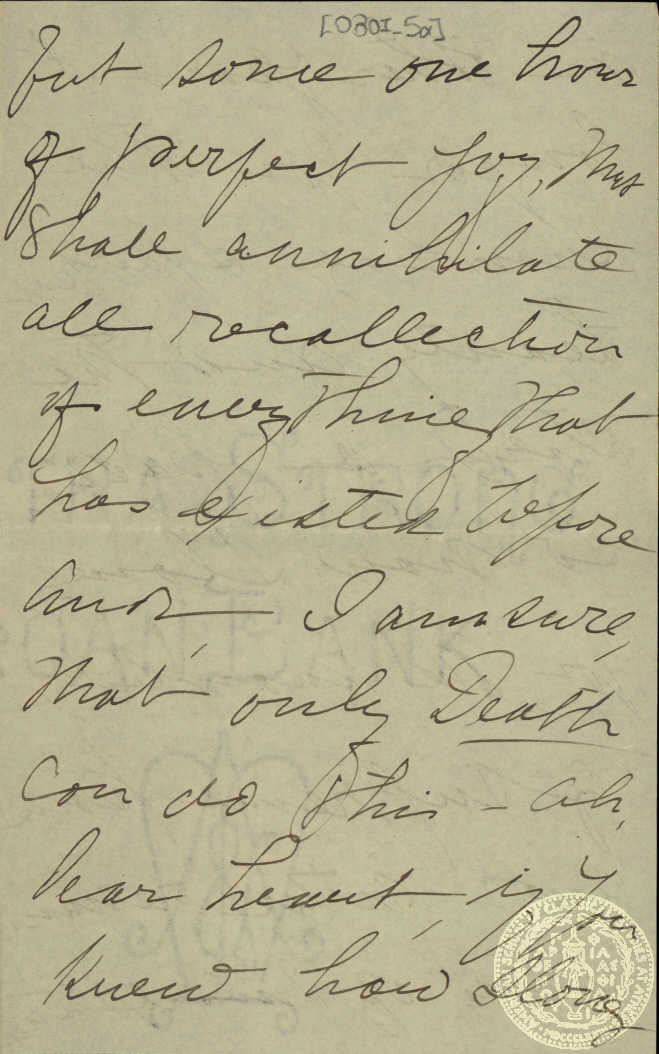 [0801-5a]
but some one hour
of perfect joy, that
shall annihilate
all recollection
of everything that
has existed before
and, I am sure,
that only Death
can do this - ah,
dear heart, if you
knew how I long